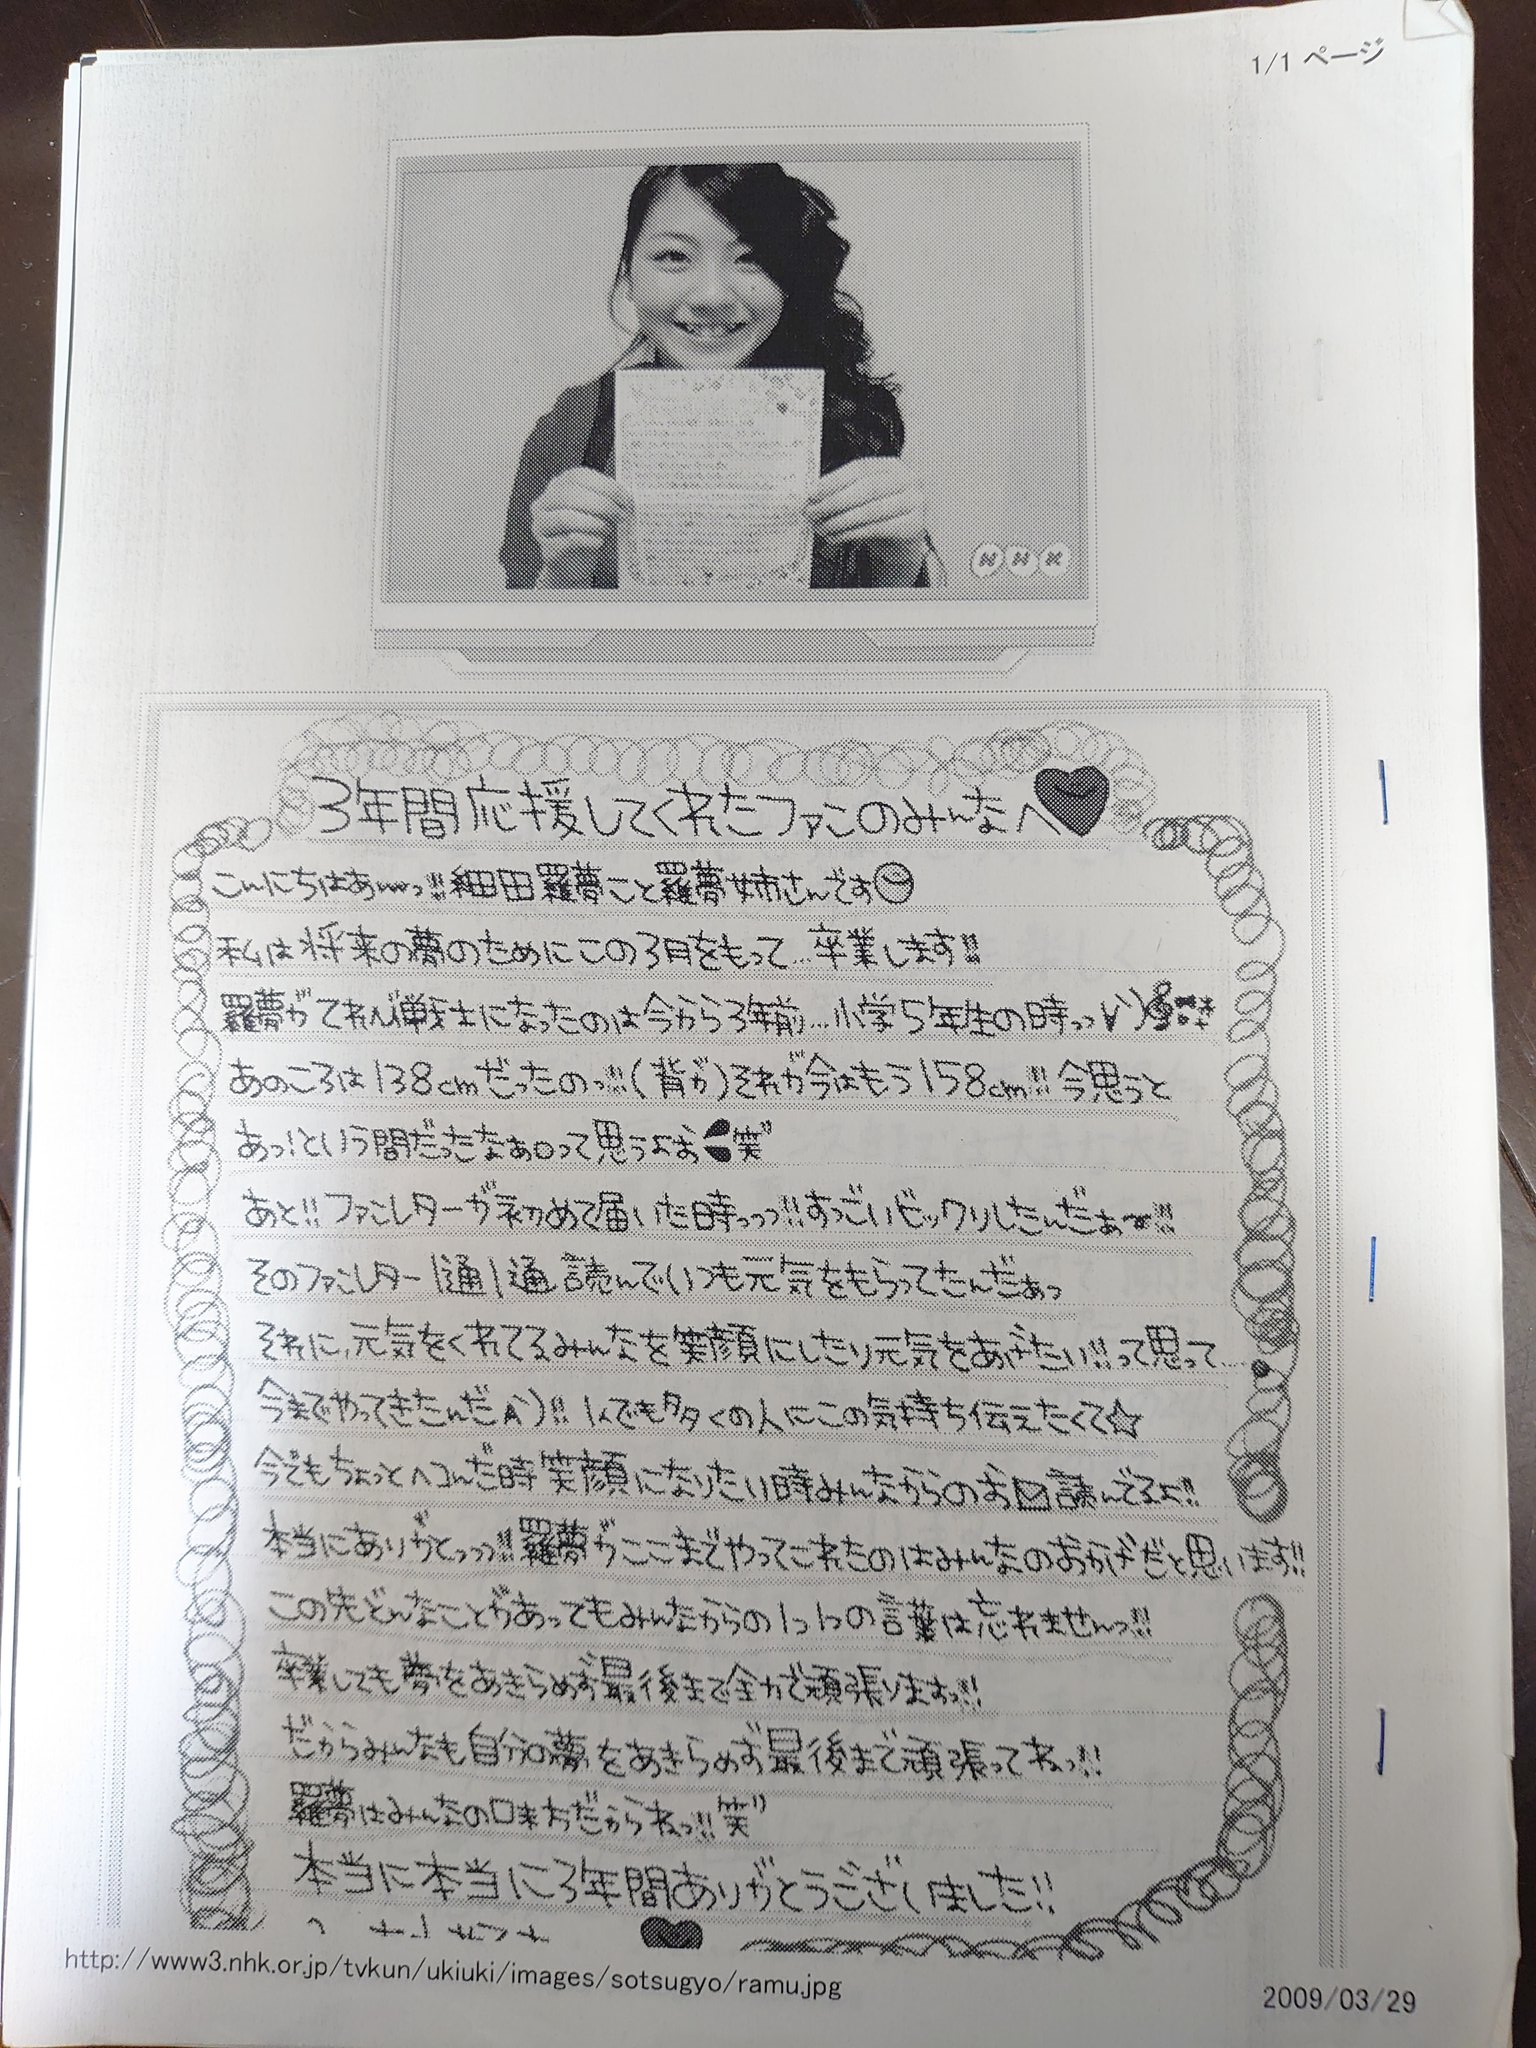 1/1 ページ
NHK
3年間応援してくれたファンのみんなへ
こんにちはあーっ!!細田羅夢こと羅夢姉さんです
私は将来の夢のためにこの3月をもって…卒業します!!
羅夢がてれび戦士になったのは今から3年前…小学5年生の時っっ
あのころは138cmだったのっ!!(背が)それが今はもう158cm!!今思うと
あっ!という間だったなぁって思うよぉ笑"
あと!!ファンレターが初めて届いた時っっっ!!すっごいビックリしたんだぁー!!
そのファンレター1通1通読んでいつも元気をもらってたんだぁっ
それに、元気をくれてるみんなを笑顔にしたり元気をあげたい!!って思って…
今までやってきたんだ!!1人でも多くの人にこの気持ち伝えたくて☆
今でもちょっとヘコんだ時笑顔になりたい時みんなからのお読んでるよ!!
本当にありがとっっっ!!羅夢がここまでやってこれたのはみんなのおかげだと思います!!
この先どんなことがあってもみんなからの1つ1つの言葉は忘れませんっ!!
卒業しても夢をあきらめず最後まで全力で頑張りますっ!!
だからみんなも自分の夢をあきらめず最後まで頑張ってねっ!!
羅夢はみんなの味方だからねっ!!笑"
本当に本当に3年間ありがとうございました!!
http://www3.nhk.or.jp/tvkun/ukiuki/images/sotsugyo/ramu.jpg
2009/03/29